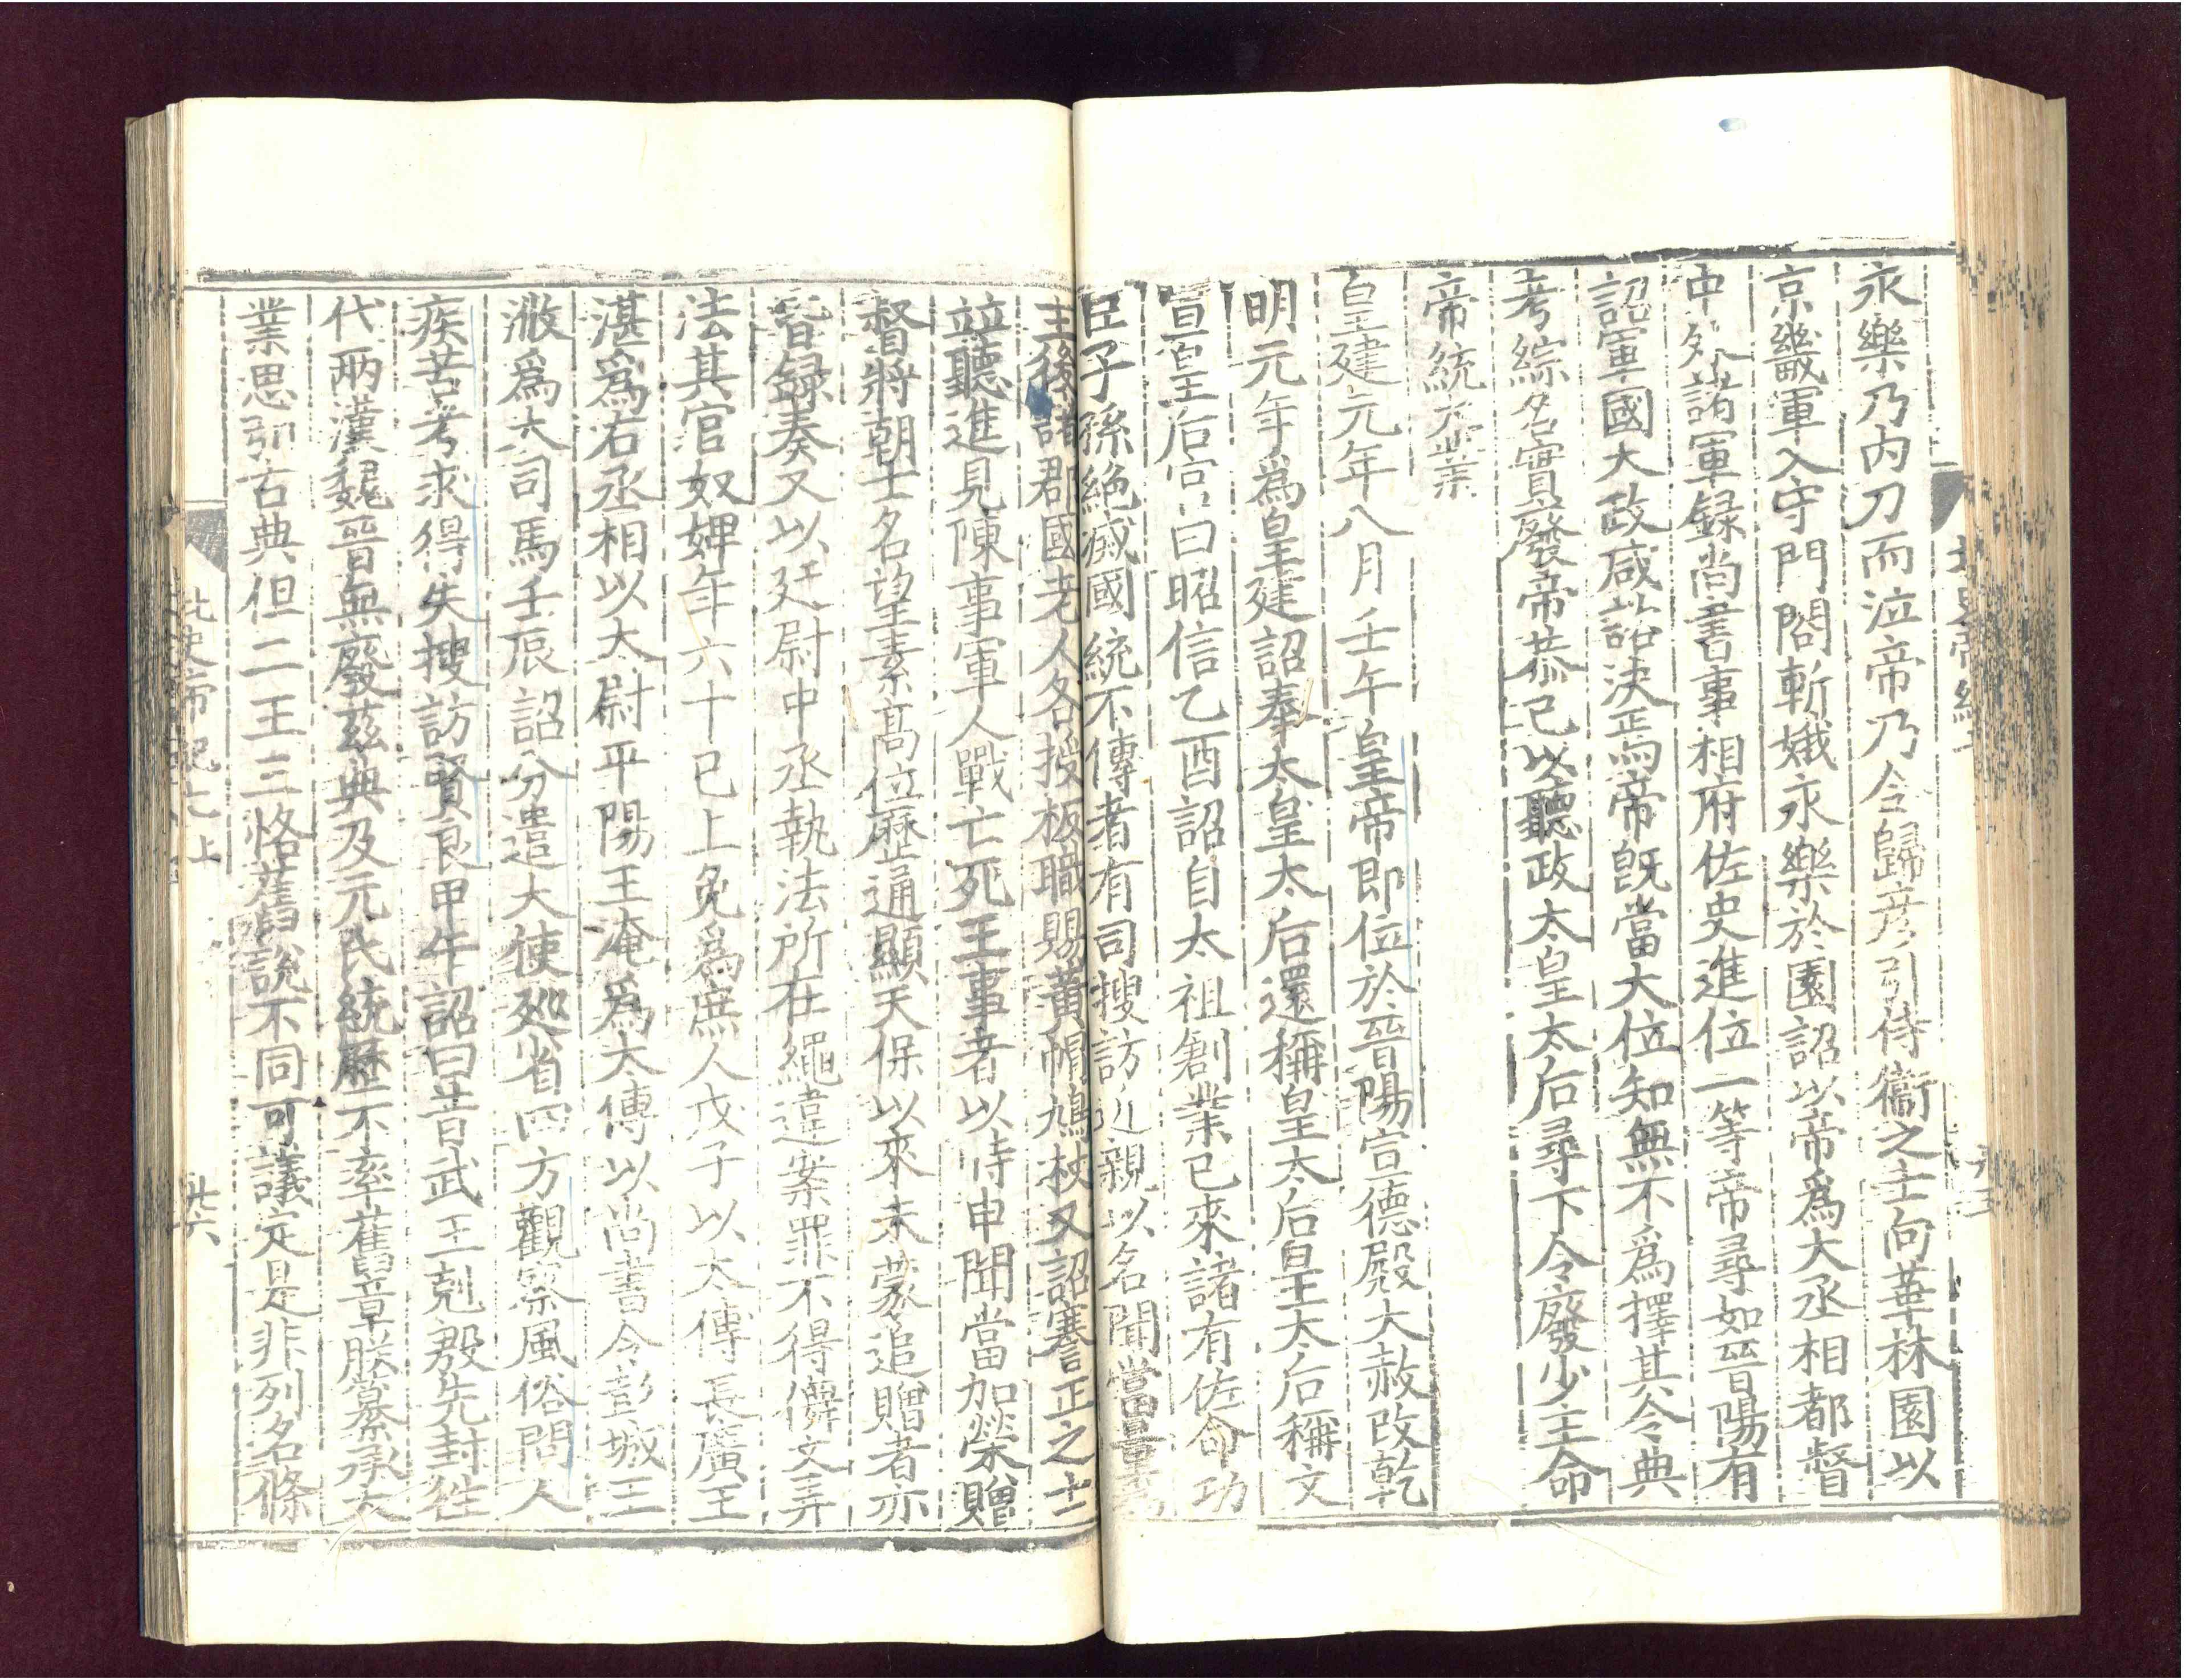 永樂乃内刀而泣帝乃令歸彦引侍衛之士向華林園以
京畿軍入守門閤斬娥永樂於園詔以帝爲大丞相都督
中外諸軍録尚書事相府佐史進位一等帝尋如晉陽有
詔軍國大政咸諮決焉帝旣當大位知無不爲擇其令典
考綜名實廢帝恭己以聽政太皇太后尋下令廢少主命
帝統大業
皇建元年八月壬午皇帝即位於晉陽宣德殿大赦改乾
明元年爲皇建詔奉太皇太后還稱皇太后皇太后稱文
宣皇后宫曰昭信乙酉詔自太祖創業已來諸有佐命功
臣子孫絶滅國統不傳者有司搜訪近親以名聞當量爲
立後諸郡國老人各授板職賜黃帽鳩杖又詔謇正之士
並聽進見陳事軍人戰亡死王事者以時申聞當加榮贈
督將朝士名望素髙位歷通顯天保以來未蒙追贈者亦
皆録奏又以廷尉中丞執法所在繩違案罪不得儛文弄
法其官奴婢年六十已上免爲庶人戊子以太傅長廣王
湛爲右丞相以太尉平陽王淹爲太傅以尚書令彭城王
浟爲大司馬壬辰詔分遣大使廵省四方觀察風俗問人
疾苦考求得失搜訪賢良甲午詔曰昔武王剋殷先封
代兩漢魏晉無廢兹典及元氏統歷不率舊章朕纂承大
業思弘古典但二王三恪舊說不同可議定是非列名條
北史帝紀七上
廿六